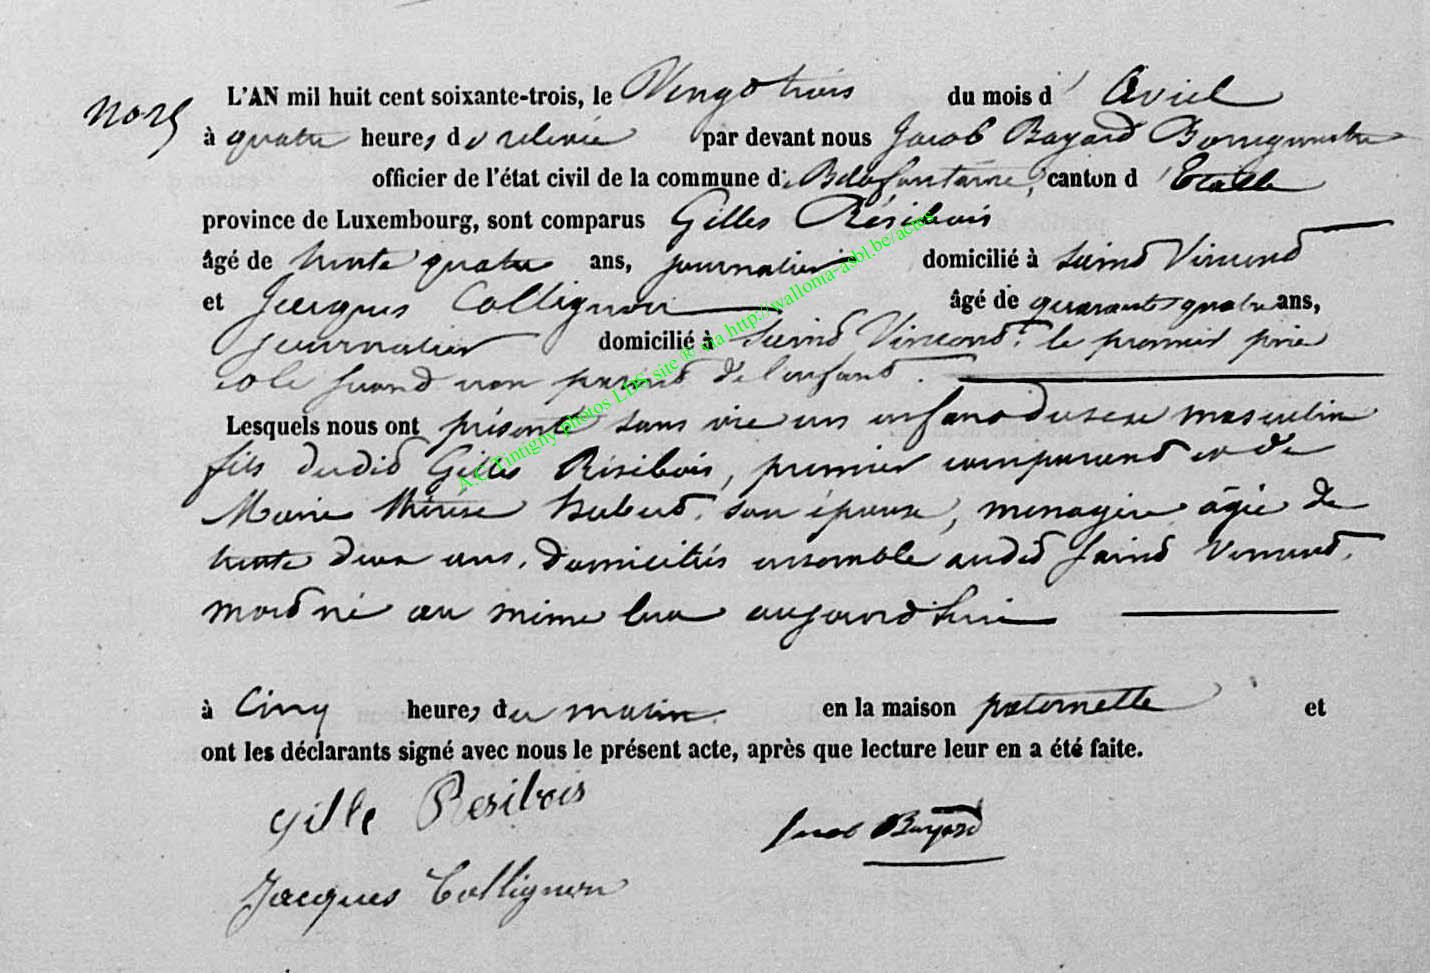 No 29
L'AN mil huit cent soixante-trois, le Vingt trois du mois d' Avril
à quatre heures de relevée par devant nous Jacob Bayard Bourgmestre
officier de l'état civil de la commune de Bellefontaine, canton d' Etalle
province de Luxembourg, sont comparus Gilles Résibois
âgé de trente quatre ans, journalier domicilié à Saint Vincent
et Jacques Collignon âgé de quarante quatre ans,
journalier domicilié à Saint Vincent, le premier père
et le second non parent de l'enfant.
Lesquels nous ont présenté sans vie un enfant du sexe masculin
fils dudit Gilles Résibois, premier comparant et de
Marie Thérése Hubert, son épouse, menagère âgée de
trente deux ans, domiciliés ensemble audit Saint Vincent,
mort né au même lieu aujourd'hui
à Cinq heures du matin en la maison paternelle et
ont les déclarants signé avec nous le présent acte, après que lecture leur en a été faite.
gille Resibois
Jacob Bayard
Jacques Collignon
A.C. Tintigny photos LDS site ® via http://walloma-asbl.be/actes